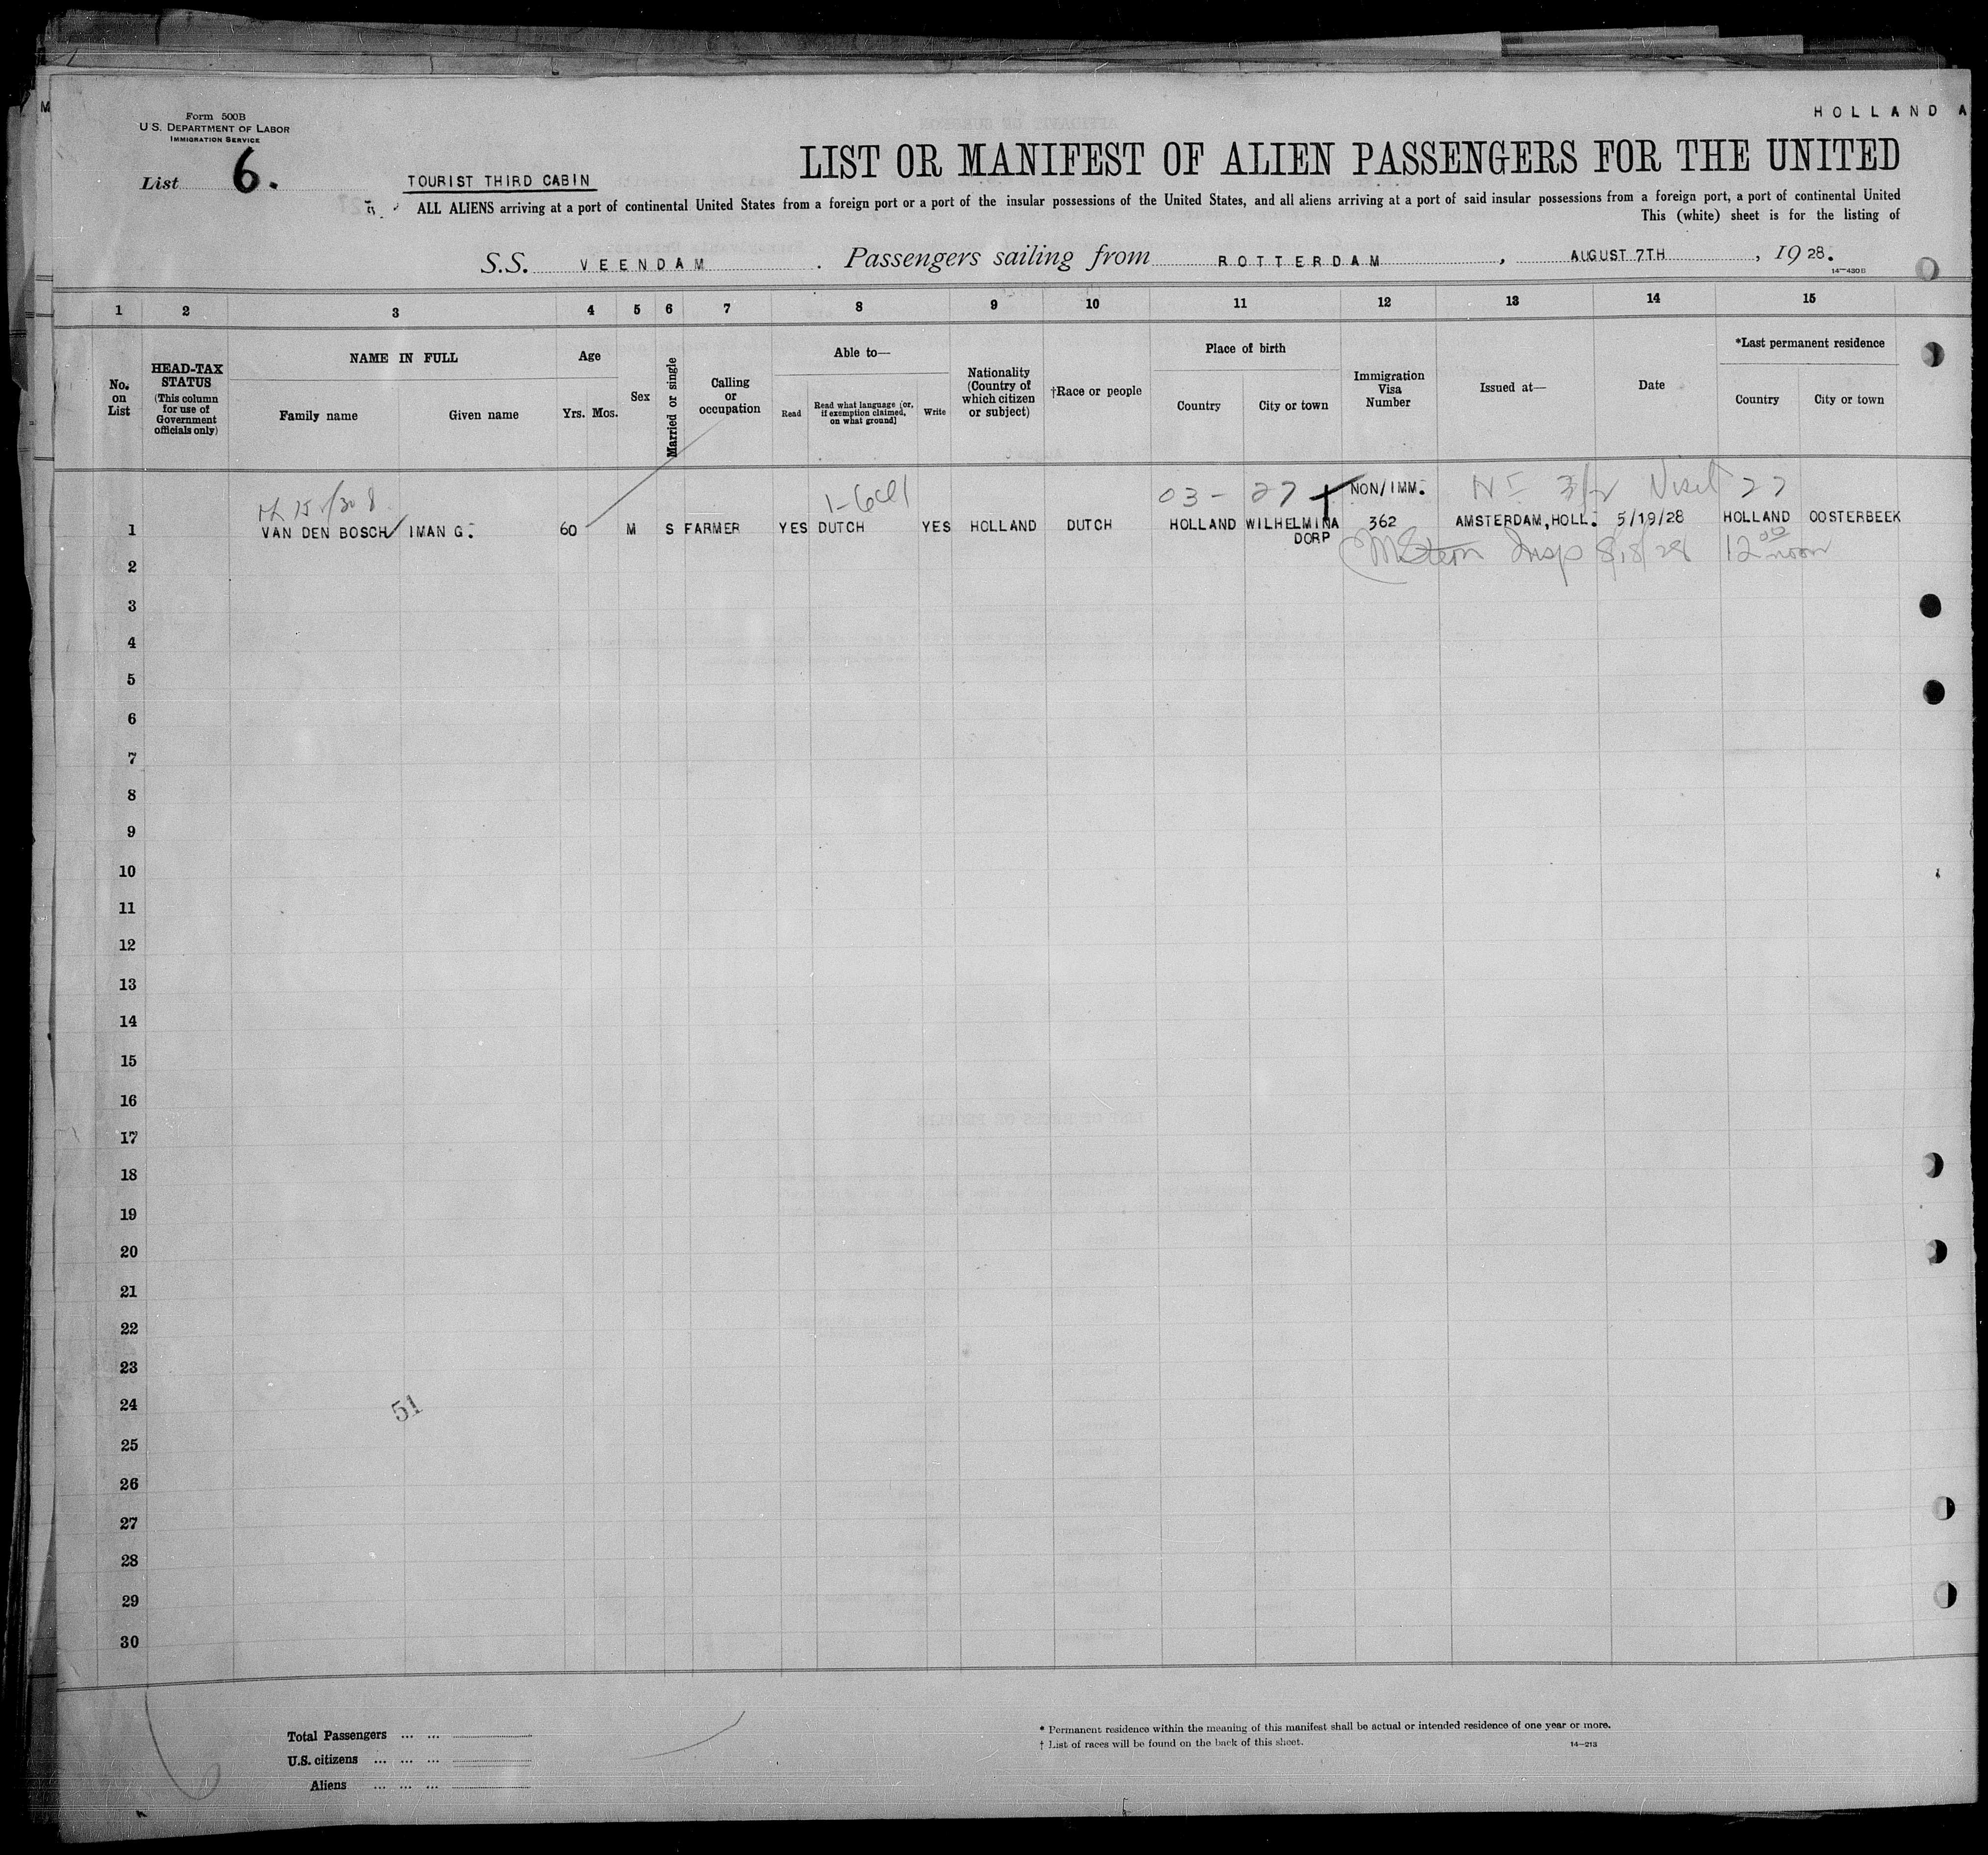 HOLLAND A
M
Form 500B
U.S. DEPARTMENT OF LABOR
IMMIGRATION SERVICE
List 6.
TOURIST THIRD CABIN
LIST OR MANIFEST OF ALIEN PASSENGERS FOR THE UNITED
ALL ALIENS arriving at a port of continental United States from a foreign port or a port of the insular possessions of the United States, and all aliens arriving at a port of said insular possessions from a foreign port, a port of continental United
This (white) sheet is for the listing of
S.S. VEENDAM. Passengers sailing from ROTTERDAM, AUGUST 7TH, 1928.
14—430B
1 2 3 4 5 6 7 8 9 10 11 12 13 14 15
No. on List
HEAD-TAX STATUS (This column for use of Government officials only)
NAME IN FULL
Family name Given name
Age
Yrs. Mos.
Sex
Married or single
Calling or occupation
Able to—
Read
Read what language [or, if exemption claimed, on what ground]
Write
Nationality (Country of which citizen or subject)
†Race or people
Place of birth
Country City or town
Immigration Visa Number
Issued at—
Date
*Last permanent residence
Country City or town
03- 27 NON/IMM. Visit 27
1 VAN DEN BOSCH IMAN G. 60 M S FARMER YES DUTCH YES HOLLAND DUTCH HOLLAND WILHELMINA DORP 362 AMSTERDAM, HOLL. 5/19/28 HOLLAND OOSTERBEEK
Stern Insp 8/18/28 12 00 noon
2
3
4
5
6
7
8
9
10
11
12
13
14
15
16
17
18
19
20
21
22
23
24
51
25
26
27
28
29
30
Total Passengers ... ...
U.S. citizens ... ... ...
Aliens ... ... ...
* Permanent residence within the meaning of this manifest shall be actual or intended residence of one year or more.
† List of races will be found on the back of this sheet.
14—213